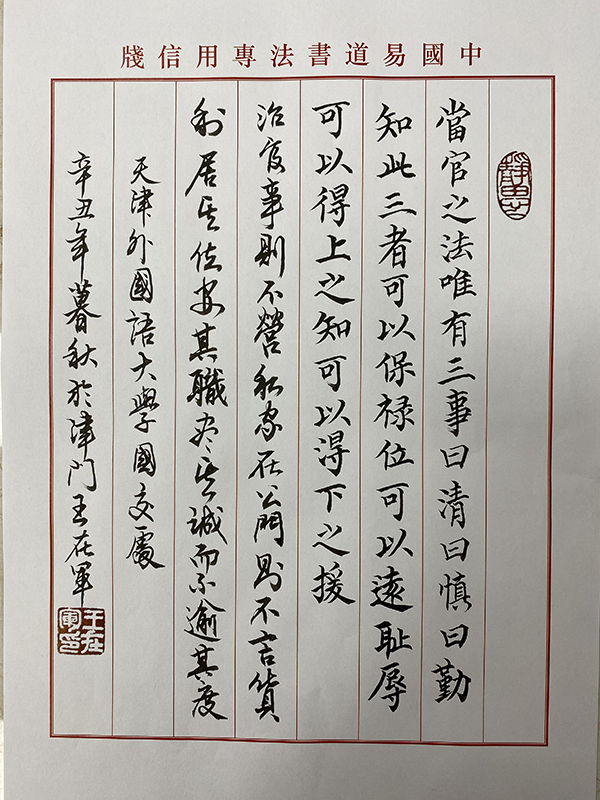 中國易道書法專用信牋
當官之法唯有三事曰清曰慎曰勤
知此三者可以保禄位可以遠耻辱
可以得上之知可以得下之援
治官事則不營私家在公門則不言貨
利居其位安其職盡其誠而不逾其度
天津外國語大學國交處
辛丑年暮秋於津門王在軍
王在軍印